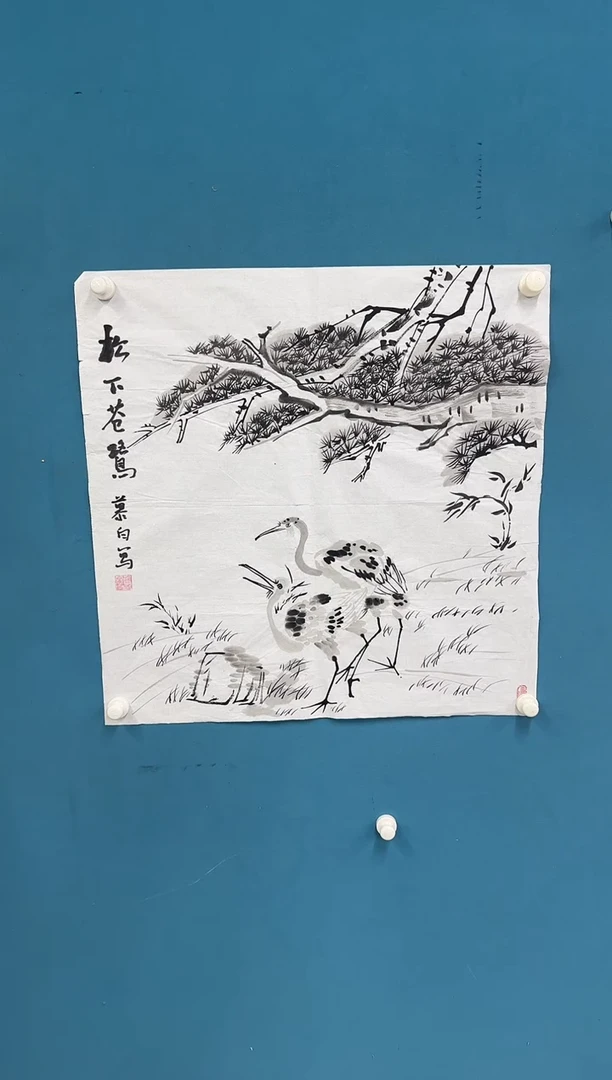 松下苍鹭
慕白写